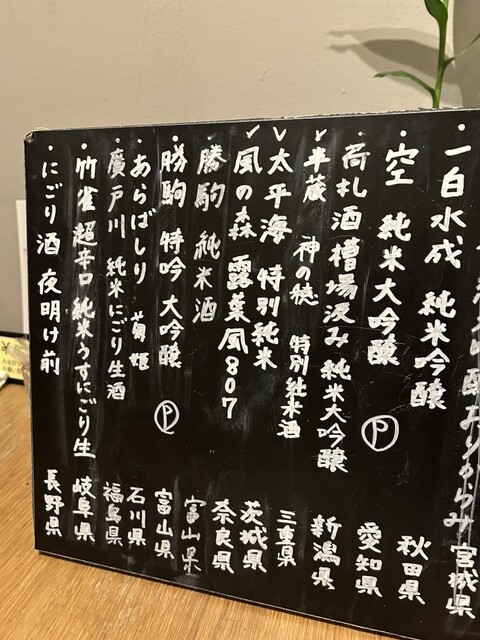 吟醸おりがらみ 宮城県
・一白水成 純米吟醸 秋田県
・空 純米大吟醸 Ⓟ 愛知県
・荷札酒 槽場汲み 純米大吟醸 新潟県
✓半蔵 神の穂 特別純米酒 三重県
✓太平海 特別純米 茨城県
✓風の森 露葉風807 奈良県
・勝駒 純米酒 富山県
・勝駒 特吟 大吟醸 Ⓟ 富山県
・あらばしり 菊姫 石川県
・廣戸川 純米にごり生酒 福島県
・竹雀 超辛口 純米うすにごり生 岐阜県
・にごり酒 夜明け前 長野県